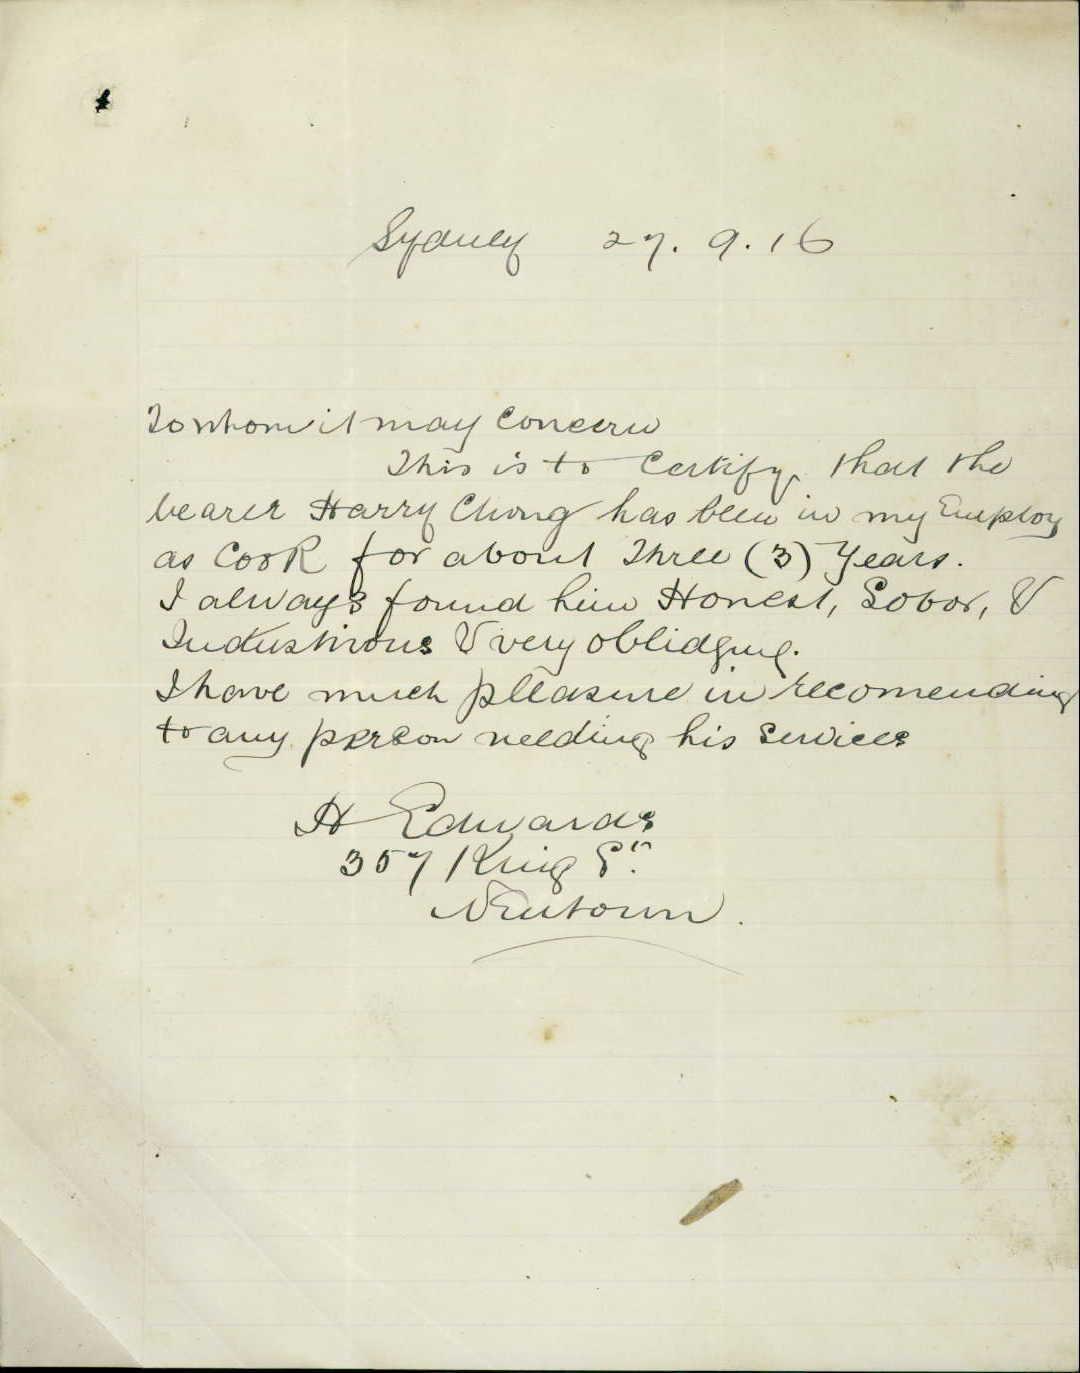 Sydney 27.9.16
To whom it may Concern
This is to Certify that the
bearer Harry Chong has been in my Employ
as Cook for about Three (3) Years.
I always found him Honest, Sobor, &
Industirous & very oblidging.
I have much pleasure in recomending
to any person needing his Services
H Edwards
357 King St.
Newtown.